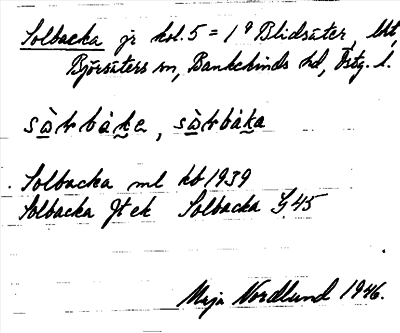 Solbacka jr kol. 5 = 1⁹ Blidsäter, lht,
Björsäters sn, Bankekinds hd, Östg. l.
Solbacka ml kb 1939
Solbacka Jt ek Solbacka G.45
Maja Nordlund 1946.